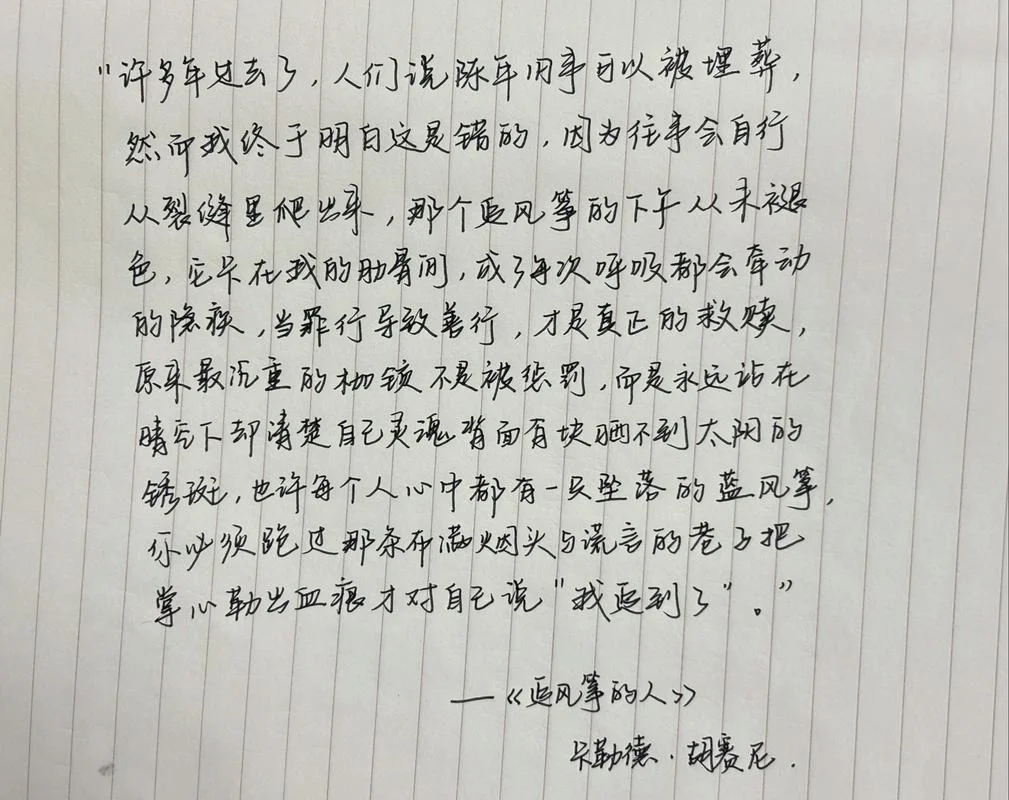 "许多年过去了，人们说陈年旧事可以被埋葬，
然而我终于明白这是错的，因为往事会自行
从裂缝里爬出来，那个追风筝的下午从未褪
色，它卡在我的肋骨间，成了每次呼吸都会牵动
的隐疾，当罪行导致善行，才是真正的救赎，
原来最沉重的枷锁不是被惩罚，而是永远站在
晴空下却清楚自己灵魂背面有块晒不到太阳的
锈斑，也许每个人心中都有一只坠落的蓝风筝，
你必须跑过那条布满烟头与谎言的巷子把
掌心勒出血痕才对自己说"我追到了"。"
——《追风筝的人》
卡勒德·胡赛尼.